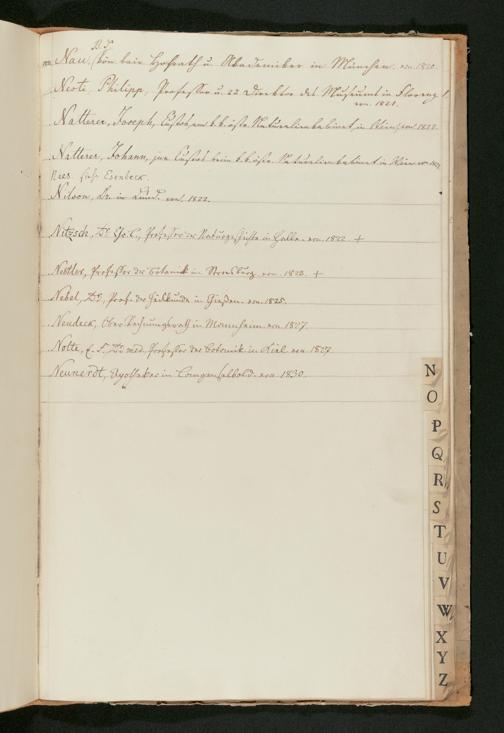 Nau, von kön baier Hofrath u. Akademiker in München. von 1820.
Nesti, Philipp, Professor u. Direktor des Museums in Florenz
von 1821.
Natterer, Joseph, Custos am k. k. östr. Naturaliencabinet in Wien von 1822.
Natterer, Johann, Custos beim k. k. östr. Naturaliencabinet in Wien
Nees siehe Esenbeck.
Nilson, Dr. in Lund. von 1822.
Nitzsch, Dr. Professor der Naturgeschichte in Halle. von 1822 +
Nestler, Professor der Botanik in Strasburg von 1823. +
Nebel, Dr. Prof. der Heilkunde in Gießen. von 1825.
Neudeck, in Mannheim von 1827.
Nolte, E. F. Dr. med. Professor der Botanik in Kiel von 1827
Neunerdt, Apotheker in Langenselbold. von 1830.
N
O
P
Q
R
S
T
U
V
W
X
Y
Z